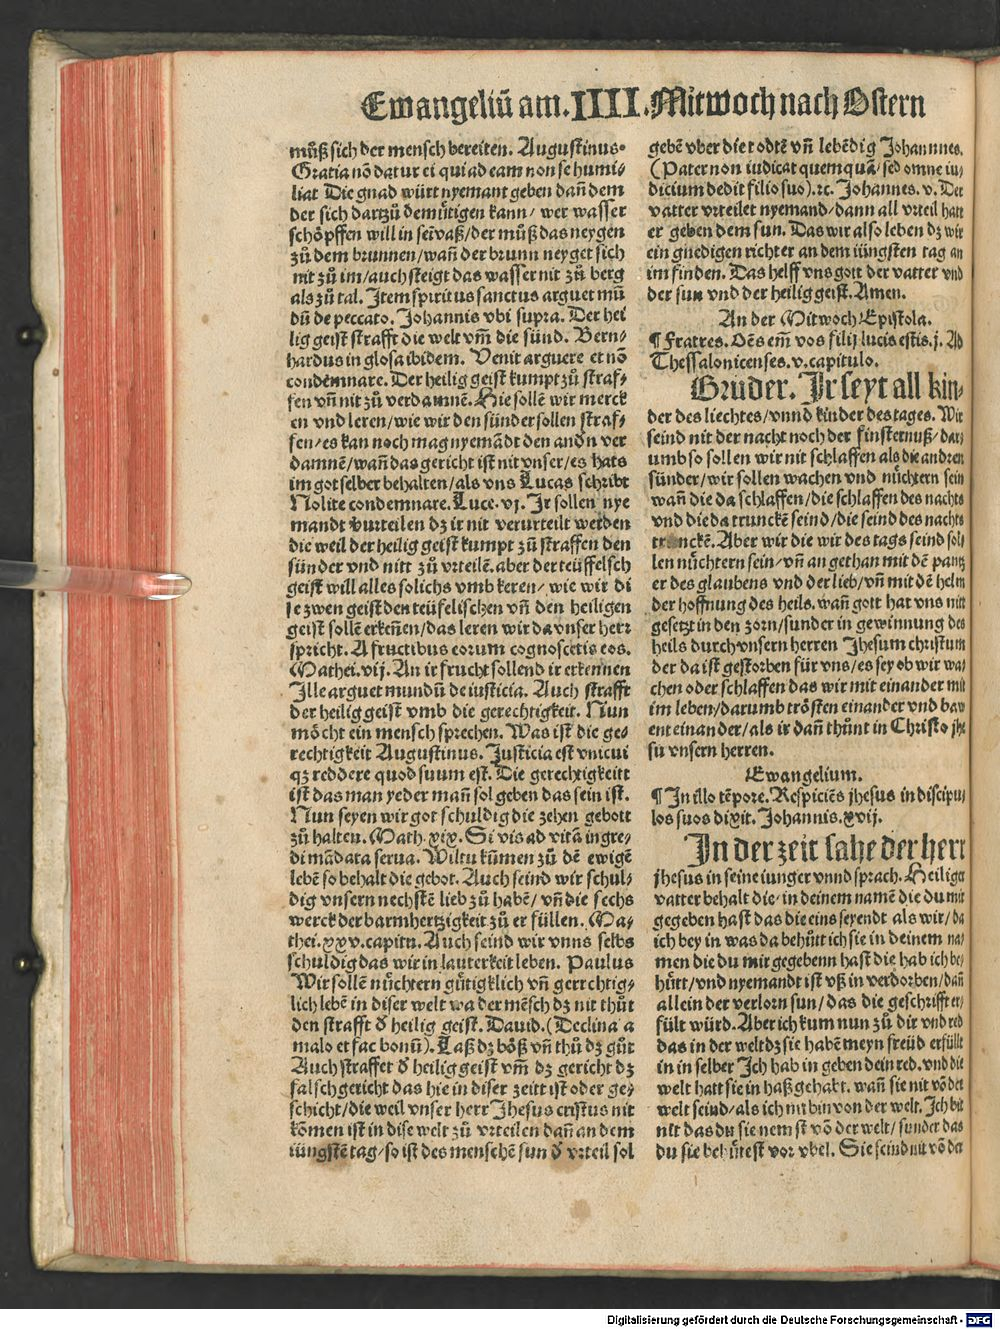 Ewangeliū am.IIII.Mitwoch nach Ostern
müß sich der mensch bereiten. Augustinus.
Gratia nō datur ei qui ad eam non se humi⸗
liat Die gnad würt nyemant geben dañ dem
der sich dartzů demütigen kann/ wer wasser
schöpffen will in seī vaß/der můß das neygen
zů dem brunnen/wañ der brunn neyget sich
nit zů im/auch steigt das wasser nit zů berg
als zů tal. Item spiritus sanctus arguet mū
dū de peccato. Johannis vbi supra. Der hei
lig geist strafft die welt vm̄ die sünd. Bern⸗
hardus in glosa ibidem. Venit arguere et nō
condemnare. Der heilig geist kumpt zů straf⸗
fen vñ nit zů verdamnē. Hie sollē wir merck
en vnd leren/wie wir den sünder sollen straf⸗
fen/es kan noch mag nyemādt den andn ver
damnē/wañ das gericht ist nit vnser/es hats
im got selber behalten/als vns Lucas schribt
Nolite condemnare. Luce. vj. Jr sollen nye
mandt vurteilen dz ir nit verurteilt werden
die weil der heilig geist kumpt zů straffen den
sünder vnd nitt zů vrteilē. aber der teüffelsch
geist will alles solichs vmb keren/ wie wir di
se zwen geist den teüfelischen vñ den heiligen
geist sollē erkeñen/das leren wir da vnser herr
spricht. A fructibus eorum cognoscetis eos.
Mathei. vij. An ir frucht sollend ir erkennen
Jlle arguet mundū de iusticia. Auch strafft
der heilig geist vmb die gerechtigkeit. Nun
möcht ein mensch sprechen. Was ist die ge⸗
rechtigkeit Augustinus. Justicia est vnicui
qz reddere quod suum est. Die gerechtigkeitt
ist das man yeder mañ sol geben das sein ist.
Nun seyen wir got schuldig die zehen gebott
zů halten. Math. xix. Si vis ad vitā ingre⸗
di mādata serua. Wiltu kūmen zů dē ewigē
lebē so behalt die gebot. Auch seind wir schul⸗
dig vnsern nechstē lieb zů habē/ vñ die sechs
werck der barmhertzigkeit zů er füllen. Ma⸗
thei. xxv. capitu. Auch seind wir vnns selbs
schuldig das wir in lauterkeit leben. Paulus
Wir sollē nüchtern gütigklich vñ gerrechtig⸗
lich lebē in diser welt wa der mēsch dz nit thůt
den strafft d̄ heilig geist. Dauid. (Declina a
malo et fac bonū). Laß dz böß vñ thů dz gůt
Auch straffet d̄ heilig geist vm̄ dz gericht dz
falsch gericht das hie in diser zeitt ist oder ge⸗
schicht/die weil vnser herr Jhesus cristus nit
kōmen ist in dise welt zů vrteilen dañ an dem
iüngstē tag/so ist des menschē sun d̄ vrteil sol
gebē vber die todtē vñ lebēdig Johannnes.
(Pater non iudicat quemquā/ sed omne iu⸗
dicium dedit filio suo).⁊c. Johannes. v. Der
vatter vrteilet nyemand/dann all vrteil hatt
er geben dem sun. Das wir also leben dz wir
ein gnedigen richter an dem iüngsten tag an
im finden. Das helff vns gott der vatter vnd
der sun vnd der heilig geist. Amen.
An der Mitwoch Epistola.
¶ Fratres. Oēs em̄ vos filij lucis estis. j. Ad
Thessalonicenses. v. capitulo.
Bruder. Jr seyt all kin⸗
der des liechtes/vnnd kinder des tages. Wir
seind nit der nacht noch der finsternuß/ dar⸗
umb so sollen wir nit schlaffen als die andren
sünder/wir sollen wachen vnd nüchtern sein
wañ die da schlaffen/die schlaffen des nachts
vnd die da trunckē seind/die seind des nachts
trunckē. Aber wir die wir des tags seind sol⸗
len nüchtern sein/vñ an gethan mit dē pantz
er des glaubens vnd der lieb/vñ mit dē helm
der hoffnung des heils. wañ gott hat vns nitt
gesetzt in den zorn/sunder in gewinnung des
heils durch vnsern herren Jhesum christum
der da ist gestorben für vns/es sey ob wir wa⸗
chen oder schlaffen das wir mit einander mit
im leben/darumb trösten einander vnd baw
ent einander/als ir dañ thůnt in Christo jhe
su vnsern herren.
Ewangelium.
¶ In illo tēpore. Respiciēs jhesus in discipu⸗
los suos dixit. Johannis. xvij.
In der zeit sahe der herr
jhesus in seine iunger vnnd sprach. Heiliger
vatter behalt die/ in deinem namē die du mir
gegeben hast das die eins seyendt als wir/ da
ich bey in was da behütt ich sie in deinem na⸗
men die du mir gegebenn hast die hab ich be⸗
hütt/vnd nyemandt ist vß in verdorben/dañ
allein der verlorn sun/das die geschrifft er⸗
fült würd. Aber ich kum nun zů dir vnd red
das in der welt dz sie habē meyn freüd erfüllt
in in selber Jch hab in geben dein red. vnd die
welt hatt sie in haß gehabt. wañ sie nit vō der
welt seind/als ich nit bin von der welt. Jch bit
nit das du sie nemst vō der welt/ sunder das
du sie behütest vor vbel. Sie seind nit vō der
Digitalisierung gefördert durch die Deutsche Forschungsgemeinschaft - DFG